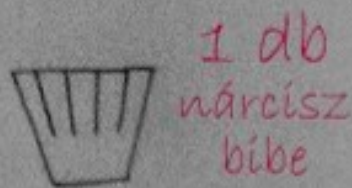 1 db
nárcisz
bibe